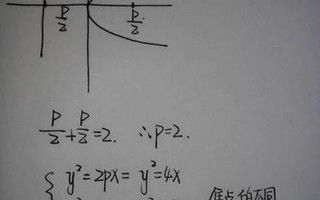 P/2 P/2
P/2+P/2=2. ∴P=2.
{ y²=2px= y²=4x
的不同